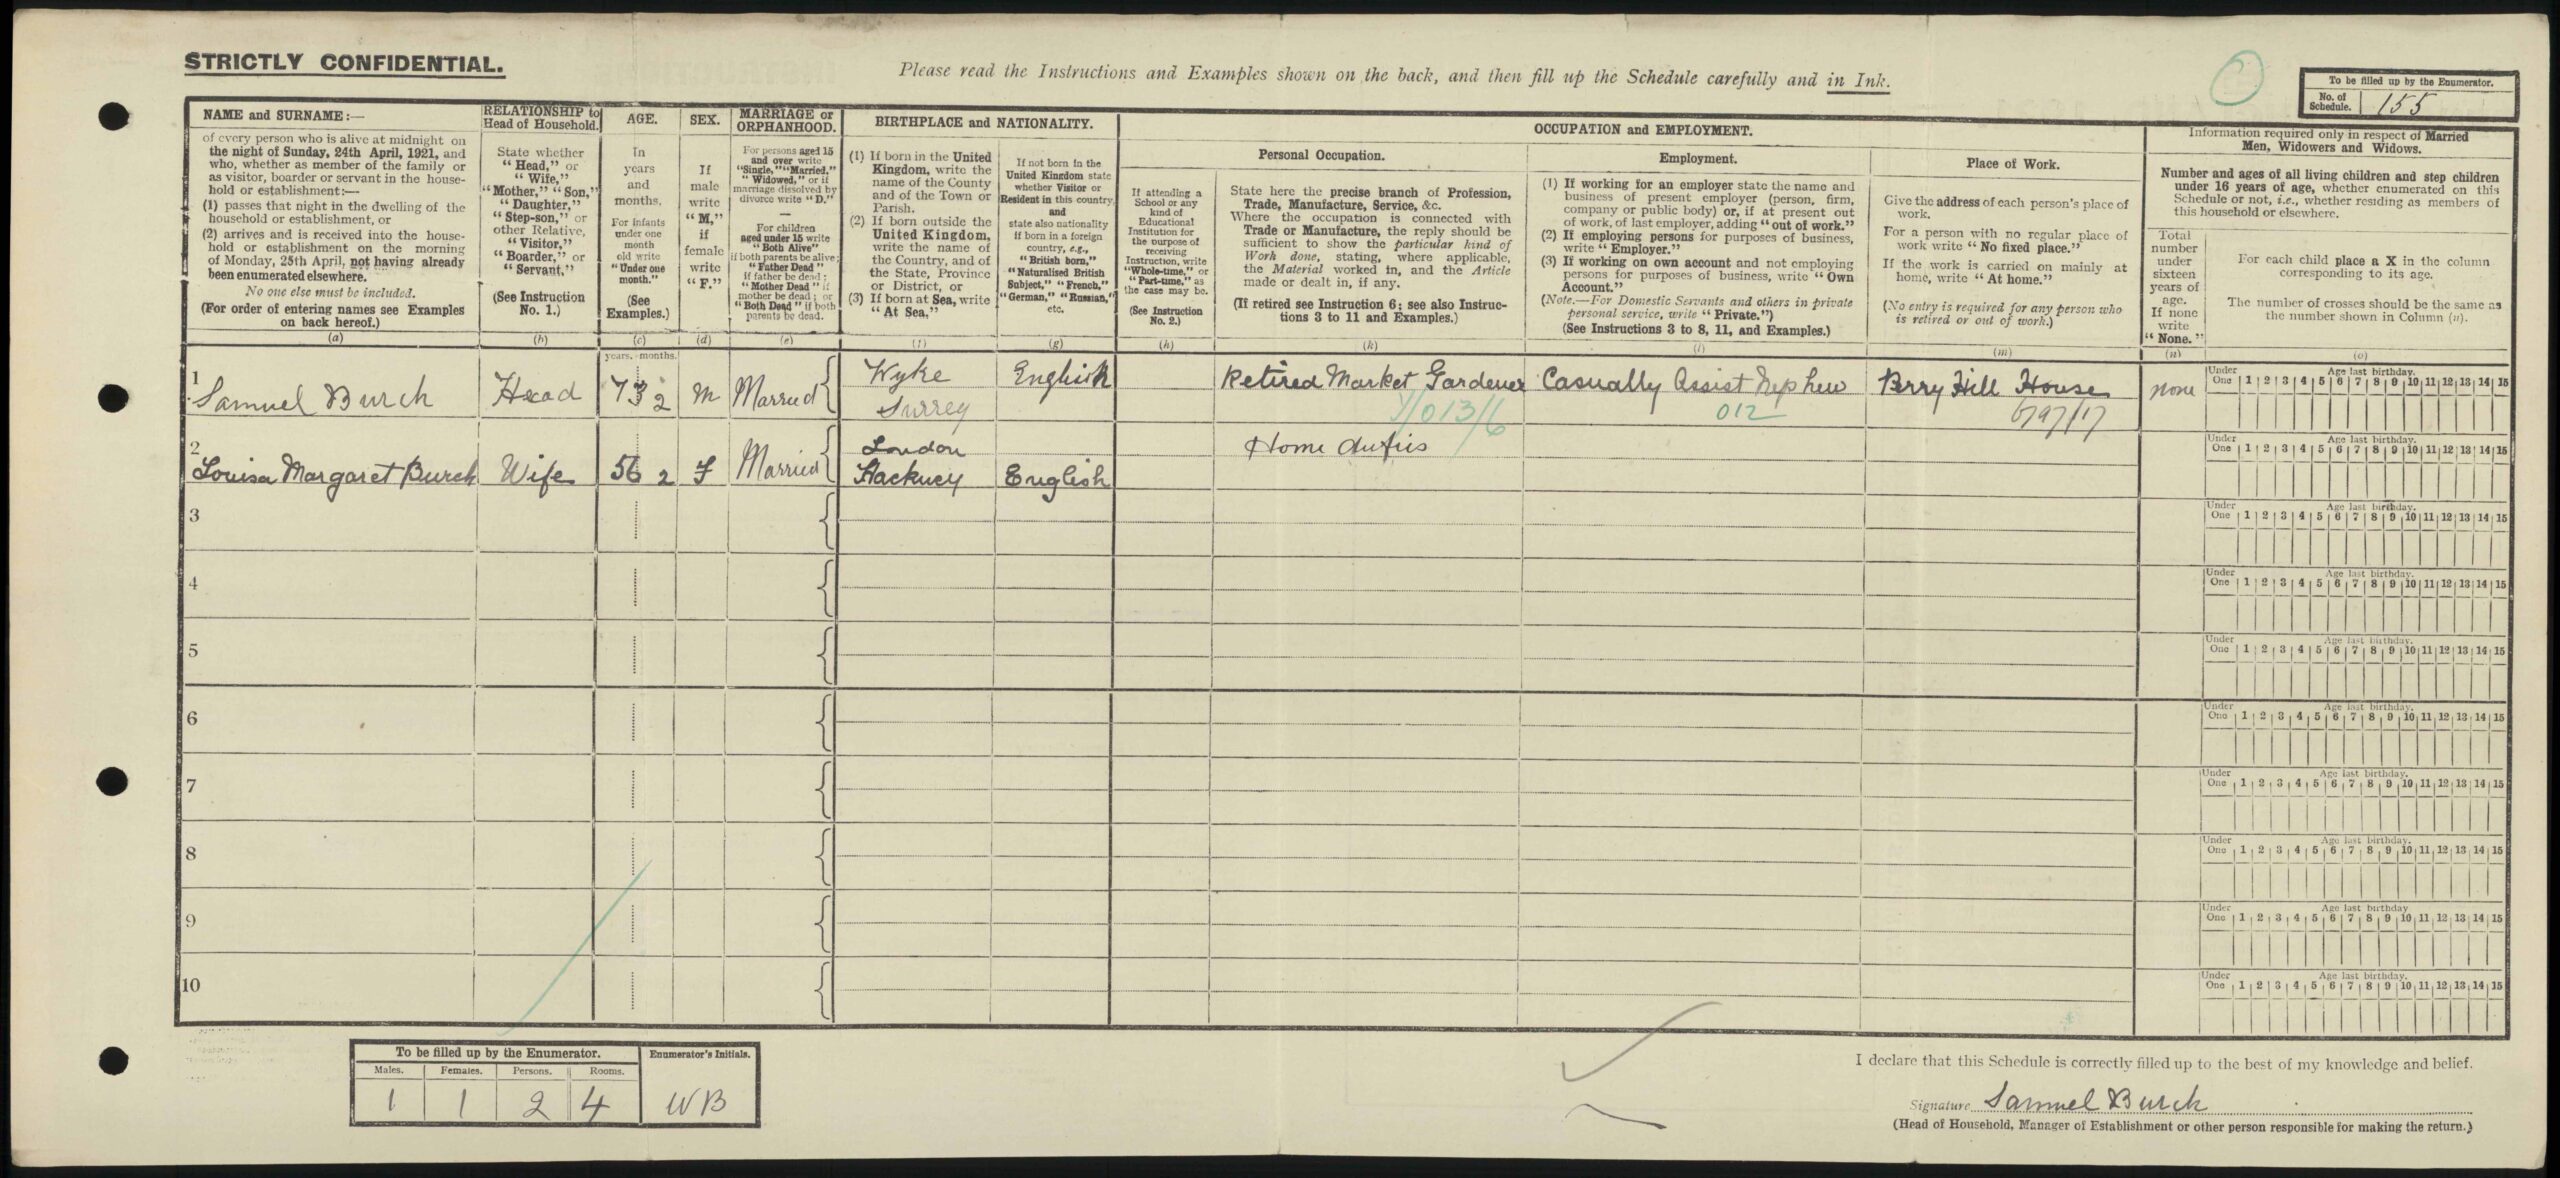 STRICTLY CONFIDENTIAL.
Please read the Instructions and Examples shown on the back, and then fill up the Schedule carefully and in Ink.
To be filled up by the Enumerator.
No. of Schedule. 155
NAME and SURNAME:—
of every person who is alive at midnight on
the night of Sunday, 24th April, 1921, and
who, whether as member of the family or
as visitor, boarder or servant in the house-
hold or establishment:—
(1) passes that night in the dwelling of the
household or establishment, or
(2) arrives and is received into the house-
hold or establishment on the morning
of Monday, 25th April, not having already
been enumerated elsewhere.
No one else must be included.
(For order of entering names see Examples
on back hereof.)
(a)
RELATIONSHIP to
Head of Household.
State whether
“Head,” or
“Wife,”
“Mother,” “Son,”
“Daughter,”
“Step-son,” or
other Relative,
“Visitor,”
“Boarder,” or
“Servant.”
(See Instruction
No. 1.)
(b)
AGE.
In
years
and
months.
For infants
under one
month
old write
“Under one
month.”
(See
Examples.)
(c)
SEX.
If
male
write
“M,”
if
female
write
“F.”
(d)
MARRIAGE or
ORPHANHOOD.
For persons aged 15
and over write
“Single,” “Married,”
“Widowed,” or if
marriage dissolved by
divorce write “D.”
—
For children
aged under 15 write
“Both Alive”
if both parents be alive;
“Father Dead”
if father be dead;
“Mother Dead” if
mother be dead; or
“Both Dead” if both
parents be dead.
(e)
BIRTHPLACE and NATIONALITY.
(1) If born in the United
Kingdom, write the
name of the County
and of the Town or
Parish.
(2) If born outside the
United Kingdom,
write the name of
the Country, and of
the State, Province
or District, or
(3) If born at Sea, write
“At Sea.”
(f)
If not born in the
United Kingdom state
whether Visitor or
Resident in this country,
and
state also nationality
if born in a foreign
country, e.g.,
“British born,”
“Naturalised British
Subject,” “French,”
“German,” “Russian,”
etc.
(g)
OCCUPATION and EMPLOYMENT.
If attending a
School or any
kind of
Educational
Institution for
the purpose of
receiving
Instruction, write
“Whole-time,” or
“Part-time,” as
the case may be.
(See Instruction
No. 2.)
(h)
Personal Occupation.
State here the precise branch of Profession,
Trade, Manufacture, Service, &c.
Where the occupation is connected with
Trade or Manufacture, the reply should be
sufficient to show the particular kind of
Work done, stating, where applicable,
the Material worked in, and the Article
made or dealt in, if any.
(If retired see Instruction 6; see also Instruc-
tions 3 to 11 and Examples.)
(k)
Employment.
(1) If working for an employer state the name and
business of present employer (person, firm,
company or public body) or, if at present out
of work, of last employer, adding “out of work.”
(2) If employing persons for purposes of business,
write “Employer.”
(3) If working on own account and not employing
persons for purposes of business, write “Own
Account.”
(Note.—For Domestic Servants and others in private
personal service, write “Private.”)
(See Instructions 3 to 8, 11, and Examples.)
(l)
Place of Work.
Give the address of each person's place of
work.
For a person with no regular place of
work write “No fixed place.”
If the work is carried on mainly at
home, write “At home.”
(No entry is required for any person who
is retired or out of work.)
(m)
Information required only in respect of Married
Men, Widowers and Widows.
Number and ages of all living children and step children
under 16 years of age, whether enumerated on this
Schedule or not, i.e., whether residing as members of
this household or elsewhere.
Total
number
under
sixteen
years of
age.
If none
write
“None.”
(n)
For each child place a X in the column
corresponding to its age.
The number of crosses should be the same as
the number shown in Column (n).
(o)
years. months.
1 Samuel Burch Head 73 2 M Married Wyke Surrey English Retired Market Gardener Casually Assist Nephew Perry Hill House none
Y/013/6 012
2 Louisa Margaret Burch Wife 56 2 F Married London Hackney English Home duties
3
4
5
6
7
8
9
10
Under One Age last birthday. 1 2 3 4 5 6 7 8 9 10 11 12 13 14 15
Under One Age last birthday. 1 2 3 4 5 6 7 8 9 10 11 12 13 14 15
Under One Age last birthday. 1 2 3 4 5 6 7 8 9 10 11 12 13 14 15
Under One Age last birthday. 1 2 3 4 5 6 7 8 9 10 11 12 13 14 15
Under One Age last birthday. 1 2 3 4 5 6 7 8 9 10 11 12 13 14 15
Under One Age last birthday. 1 2 3 4 5 6 7 8 9 10 11 12 13 14 15
Under One Age last birthday. 1 2 3 4 5 6 7 8 9 10 11 12 13 14 15
Under One Age last birthday. 1 2 3 4 5 6 7 8 9 10 11 12 13 14 15
Under One Age last birthday 1 2 3 4 5 6 7 8 9 10 11 12 13 14 15
Under One Age last birthday. 1 2 3 4 5 6 7 8 9 10 11 12 13 14 15
To be filled up by the Enumerator.
Enumerator's Initials.
Males. Females. Persons. Rooms.
1 1 2 4 WB
I declare that this Schedule is correctly filled up to the best of my knowledge and belief.
Signature Samuel Burch
(Head of Household, Manager of Establishment or other person responsible for making the return.)